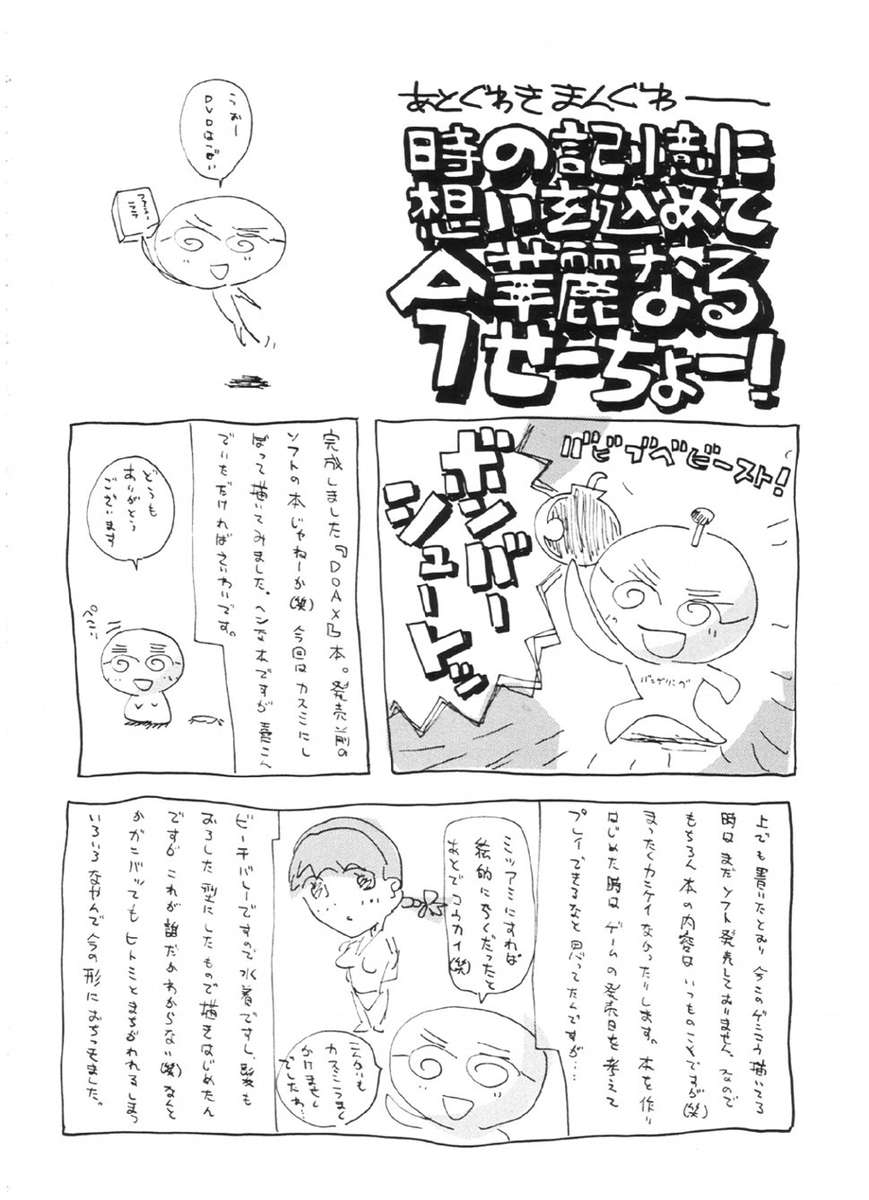 あとぐわき まんぐわ
時の記憶に
想いを込めて
今華麗なる
せーちょー!
DVDは
バビブベビースト!
ボンバー
シュート
バンゲリング
完成しました『DOAX』本。発売前の
ソフトの本じゃねーか(笑)今回はカスミにし
ぼって描いてみました。ヘンな本ですが喜こん
でいただければさいわいです。
どうも
ありがとう
ございます
ぺこっ
上でも書いたとおり今このゲンコウ描いてる
時はまだソフト発売しておりません。なので
もちろん本の内容はいつものことですが(笑)
まったくカンケイなかったりします。本を作り
はじめた時はゲームの発売日を考えて
プレイできるなと思ってたんですが…
ミツアミにすれば
絵的にらくだったと
あとでコウカイ(笑)
こんかいも
カスミうまく
かけません
でしたわ…
ビーチバレーですので水着ですし、髪も
おろした型にしたもので描きはじめたん
ですがこれが誰だかわからない(笑)なんと
かガンバッてもヒトミとまちがわれるしまつ
いろいろなやんで今の形におちつきました。